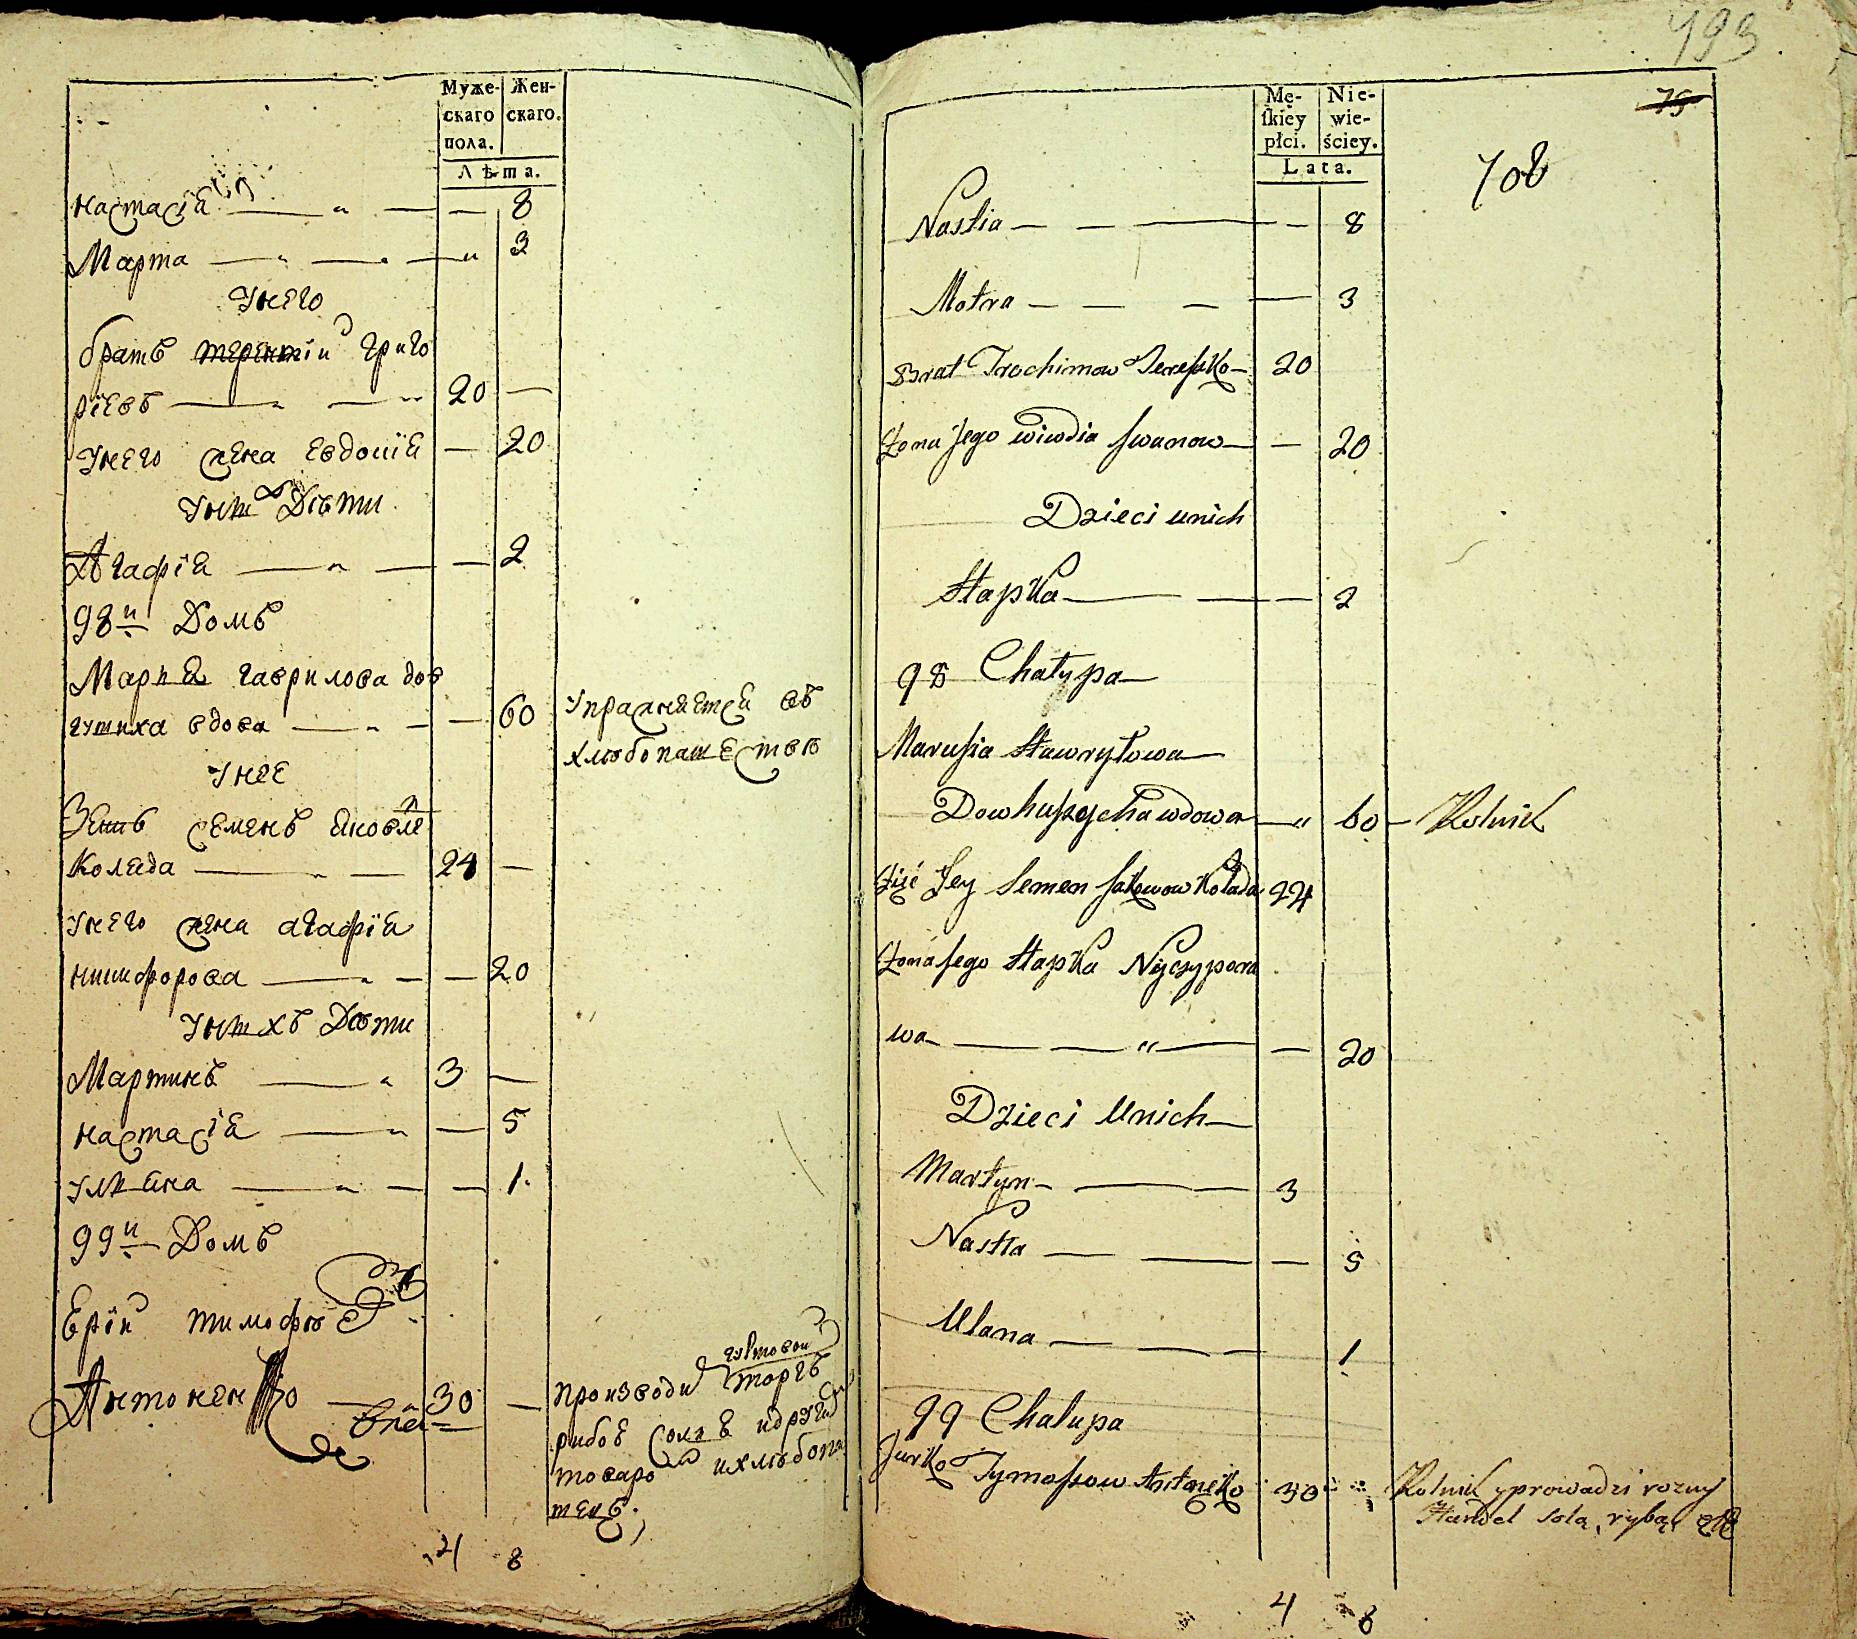 Муже-
скаго
пола.
Жен-
скаго.
Лѣта.
настасія — „ — — 8
Марта — „ — „ 3
унего
братъ терентіи григо
ріевъ — „ — „ 20 —
унего жена евдокія — 20
Дѣти
Агафія — „ — — 2
98й Домъ
Марья гаврилова дов
гушиха вдова — „ — — 60
упражняется въ
хлѣбопашествѣ
унее
Зять семенъ яковле
Коляда — „ — 24 —
унего жена агафія
никифорова — „ — — 20
унихъ Дѣти
Мартинъ — „ 3 —
настасія — „ — 5
ульяна — „ — — 1.
99й Домъ
тимофѣ
Антоненко — 30 —
производи торгъ
рибое соль и други
товаро ихлѣбопа
4 8
493
75
Mę-
ſkiey
płci.
Nie-
wie-
ściey.
Lata.
708
Nastia — — — — 8
Motra — — — — 3
Brat Trochimow Tereszko — 20
Żona Jego Wiwdia Iwanow — — 20
Dzieci unich
Hapka — — — 2
98 Chałupa —
Marusia Hawryłowa —
Dowhuszycha wdowa — „ 60 — Rolnik
Zięć Jey Semen Jakowow Kolada 24
Żona Jego Hapka Nyczyporo
wa — — „ — — 20
Dzieci Unich —
Martyn — — — 3
Nastia — — — 5
Ulana — — — 1
99 Chalupa
Jurko Tymoszow Antonenko 30
Rolnik y prowadzi rozny
Handel solą, rybą,
4 8